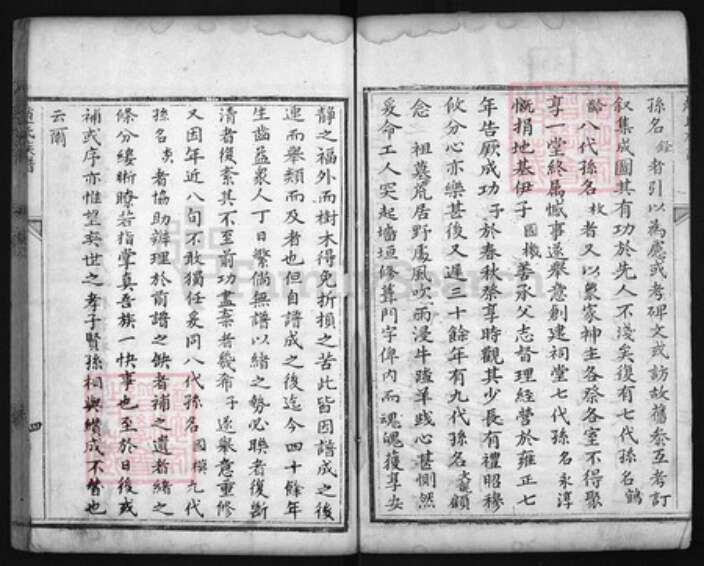 孫名銓者引以為應或考碑文或訪故舊泰互考訂
叙集成圖其有功於先人不淺矣復有七代孫名鶴
齡八代孫名枚者又以衆家神主各祭各室不得聚
享一堂終屬憾事遂舉意創建祠堂七代孫名永淳
慨捐地基伊子國機善承父志督理經營於雍正七
年告厥成功子於春秋祭享時觀其少長有禮昭穆
攸分心亦樂甚後又遲三十餘年有九代孫名顧
念祖墓荒居野處風吹雨浸牛踏羊踐心甚惻然
爰命工人突起墻垣修葺門字俾內而魂魄獲享安
靜之福外而樹木得免折損之苦此皆因譜成之後
連而舉類而及者也但自譜成之後迄今四十餘年
生齒益衆人丁日繁倘無譜以緒之勢必聯者復斷
清者復紊其不至前功盡棄者幾希子遂舉意重修
又因年近八旬不敢獨任爰同八代孫名國模九代
孫名者協助辦理於前譜之缺者補之遺者緒之
條分縷晰瞭若指掌真吾族一快事也至於日後或
補或序亦惟望奕世之孝子賢孫相與纘成不替也
云爾
四